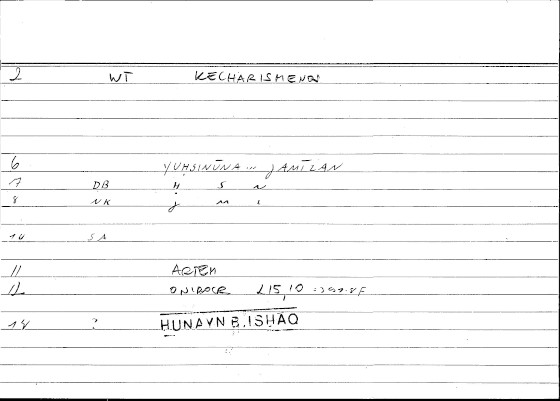 2 WT KECHARISMENOS
6 YUHSINŪNA ... JAMĪLAN
7 DB Ḥ S N
8 NK J M L
10 SA
11 ARTEM
12 ONIROCR 215,10
14 ? HUNAYN B. ISHAQ